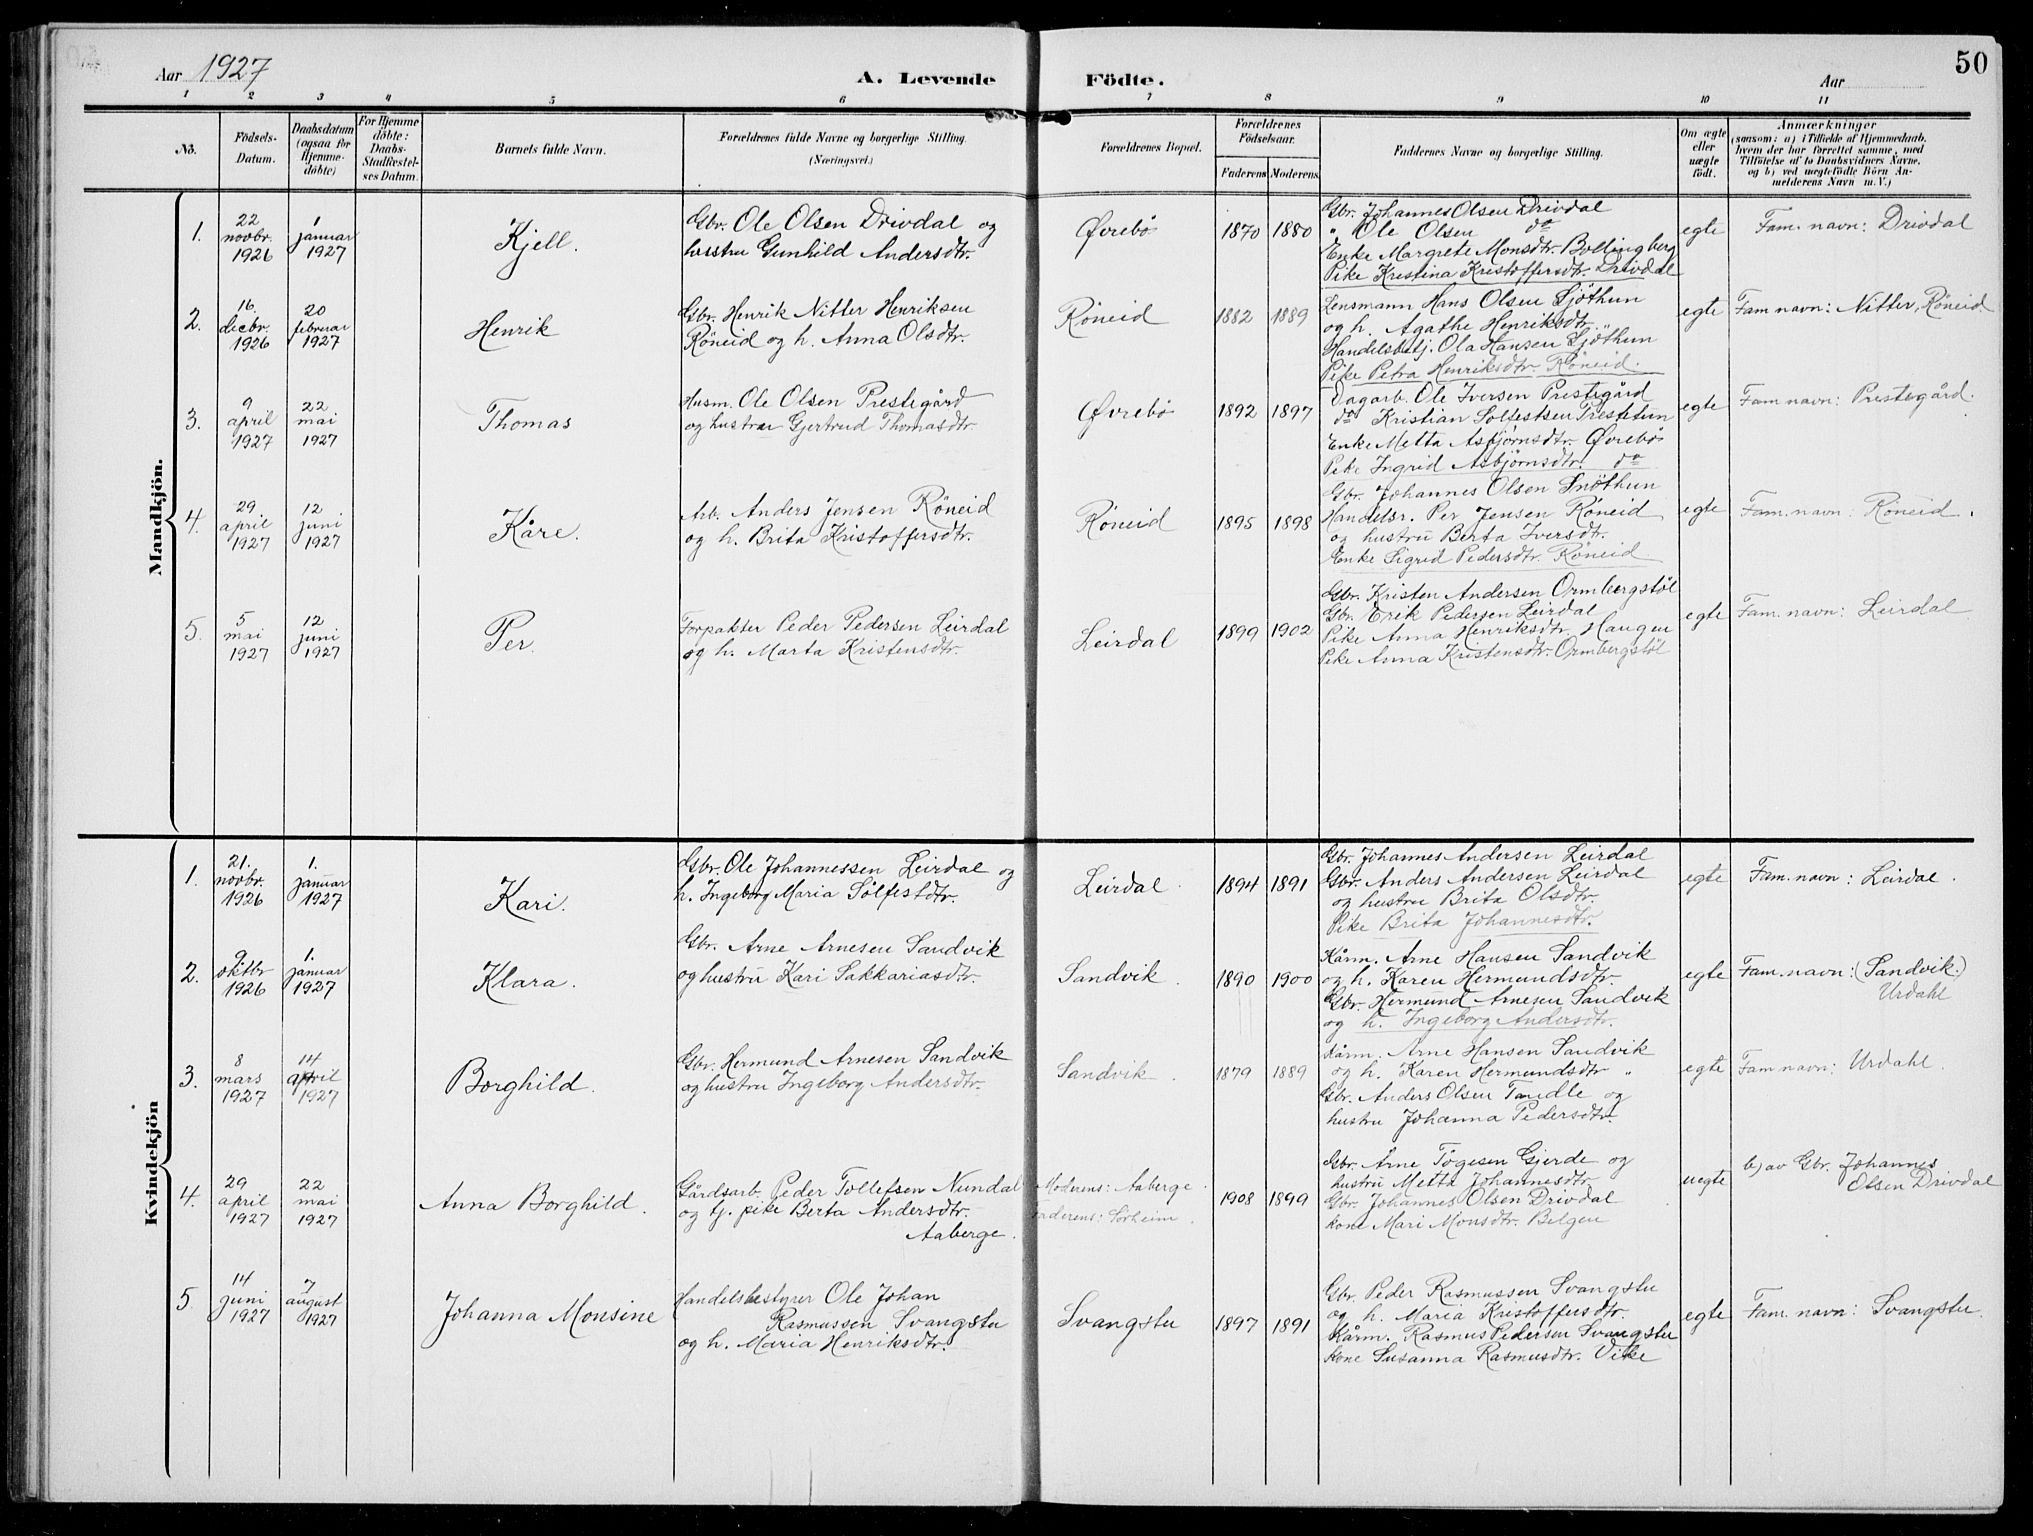 Aar 1927
A. Levende Födte.
Aar
50
1 2 3 4 5 6 7 8 9 10 11
No.
Födsels-
Datum.
Daabsdatum
(ogsaa for
Hjemme-
döbte)
For Hjemme
döbte:
Daabs-
Stadfæstel-
ses Datum.
Barnets fulde Navn.
Forældrenes fulde Navne og borgerlige Stilling.
(Næringsvei.)
Forældrenes Bopæl.
Forældrenes
Födselsaar.
Faderens
Moderens
Faddernes Navne og borgerlige Stilling.
Om ægte
eller
uægte
födt.
Anmærkninger
(saasom: a) i Tilfælde af Hjemmedaab,
hvem der har forrettet samme, med
Tilföielse af to Daabsvidners Navne,
og b) ved uægtefödte Börn An-
melderens Navn m.V.)
Mandkjön.
1.
22
novbr.
1926
1
januar
1927
Kjell.
Gbr. Ole Olsen Drivdal og
hustru Gunhild Andersdtr.
Øvrebö
1870
1880
Gbr. Johannes Olsen Drivdal
" Ole Olsen do
Enke Margrete Monsdtr. Bollingberg
Pike Kristina Kristoffersdtr. Drivdal
egte
Fam. navn: Drivdal
2.
16
decbr.
1926
20
februar
1927
Henrik
Gbr. Henrik Nitter Henriksen
Röneid og h. Anna Olsdtr.
Röneid
1882
1889
Lensmann Hans Olsen Sjöthun
og h. Agathe Henriksdtr. "
Handelsbetj. Ola Hansen Sjöthun
Pike Petra Henriksdtr. Röneid.
egte
Fam navn: Nitter, Röneid.
3.
9
april
1927
22
mai
1927
Thomas
Husm. Ole Olsen Prestegård
og hustru Gjertrud Thomasdtr.
Øvrebö
1892
1897
Dagarb. Ole Iversen Prestegård
do Kristian Solfestsen
Enke Metta Asbjörnsdtr. Øvrebö
Pike Ingrid Asbjörnsdtr. do
egte
Fam navn: Prestegård.
4.
29
april
1927
12
juni
1927
Kåre.
Arb. Anders Jensen Röneid
og h. Brita Kristoffersdtr.
Röneid
1895
1898
Gbr. Johannes Olsen Snöthun
Handelsr. Per Jensen Röneid
og hustru Berta Iversdtr.
Enke Sigrid Pedersdtr. Röneid
egte
Fam. navn: Röneid.
5.
5
mai
1927
12
juni
1927
Per.
Forpakter Peder Pedersen Leirdal
og h. Marta Kristensdtr.
Leirdal
1899
1902
Gbr. Kristen Andersen Ormbergstöl
Gbr. Erik Pedersen Leirdal
Pike Anna Henriksdtr. Haugen
Pike Anna Kristensdtr. Ormbergstöl
egte
Fam. navn: Leirdal
Kvindekjön
1.
21.
novbr.
1926
1.
januar
1927
Kari.
Gbr. Ole Johannessen Leirdal og
h. Ingeborg Maria Sölfestdtr.
Leirdal.
1894
1891
Gbr. Johannes Andersen Leirdal
Gbr. Anders Andersen Leirdal
og hustru Brita Olsdtr.
Pike Brita Johannesdtr.
egte
Fam. navn: Leirdal.
2.
9.
oktbr
1926
1.
januar
1927
Klara.
Gbr. Arne Arnesen Sandvik
og hustru Kari Sakkariasdtr.
Sandvik.
1890
1900
Kårm. Arne Hansen Sandvik
og h. Karen Hermundsdtr.
Gbr. Hermund Arnesen Sandvik
og h. Ingeborg Andersdtr.
egte
Fam. navn: (Sandvik.)
Urdahl
3.
8
mars
1927
14
april
1927
Borghild.
Gbr. Hermund Arnesen Sandvik
og hustru Ingeborg Andersdtr.
Sandvik.
1879
1889
Kårm. Arne Hansen Sandvik
og h. Karen Hermundsdtr "
Gbr. Anders Olsen Tandle og
hustru Johanna Pedersdtr.
egte
Fam navn: Urdahl.
4.
29
april
1927
22
mai
1927
Anna Borghild.
Gårdsarb. Peder Tollefsen Nundal
og tj. pike Berta Andersdtr.
Aaberge.
Moderens: Aaberge.
Faderens: Sörheim.
1908
1899
Gbr. Arne Tögesen Gjerde og
hustru Metta Johannesdtr.
Gbr. Johannes Olsen Drivdal
kone Mari Monsdtr. Bolgen
uegte
b) av Gbr. Johannes
Olsen Drivdal
5.
14
juni
1927
7
august
1927
Johanna Monsine
Handelsbestyrer Ole Johan
Rasmussen Svangstu
og h. Maria Henriksdtr.
Svangstu
1897
1891
Gbr. Peder Rasmussen Svangstu
og h. Maria Kristoffersdtr.
Kårm. Rasmus Pedersen Svangstu
kone Susanna Rasmusdtr. Vike
egte
Fam. navn: Svangstu.